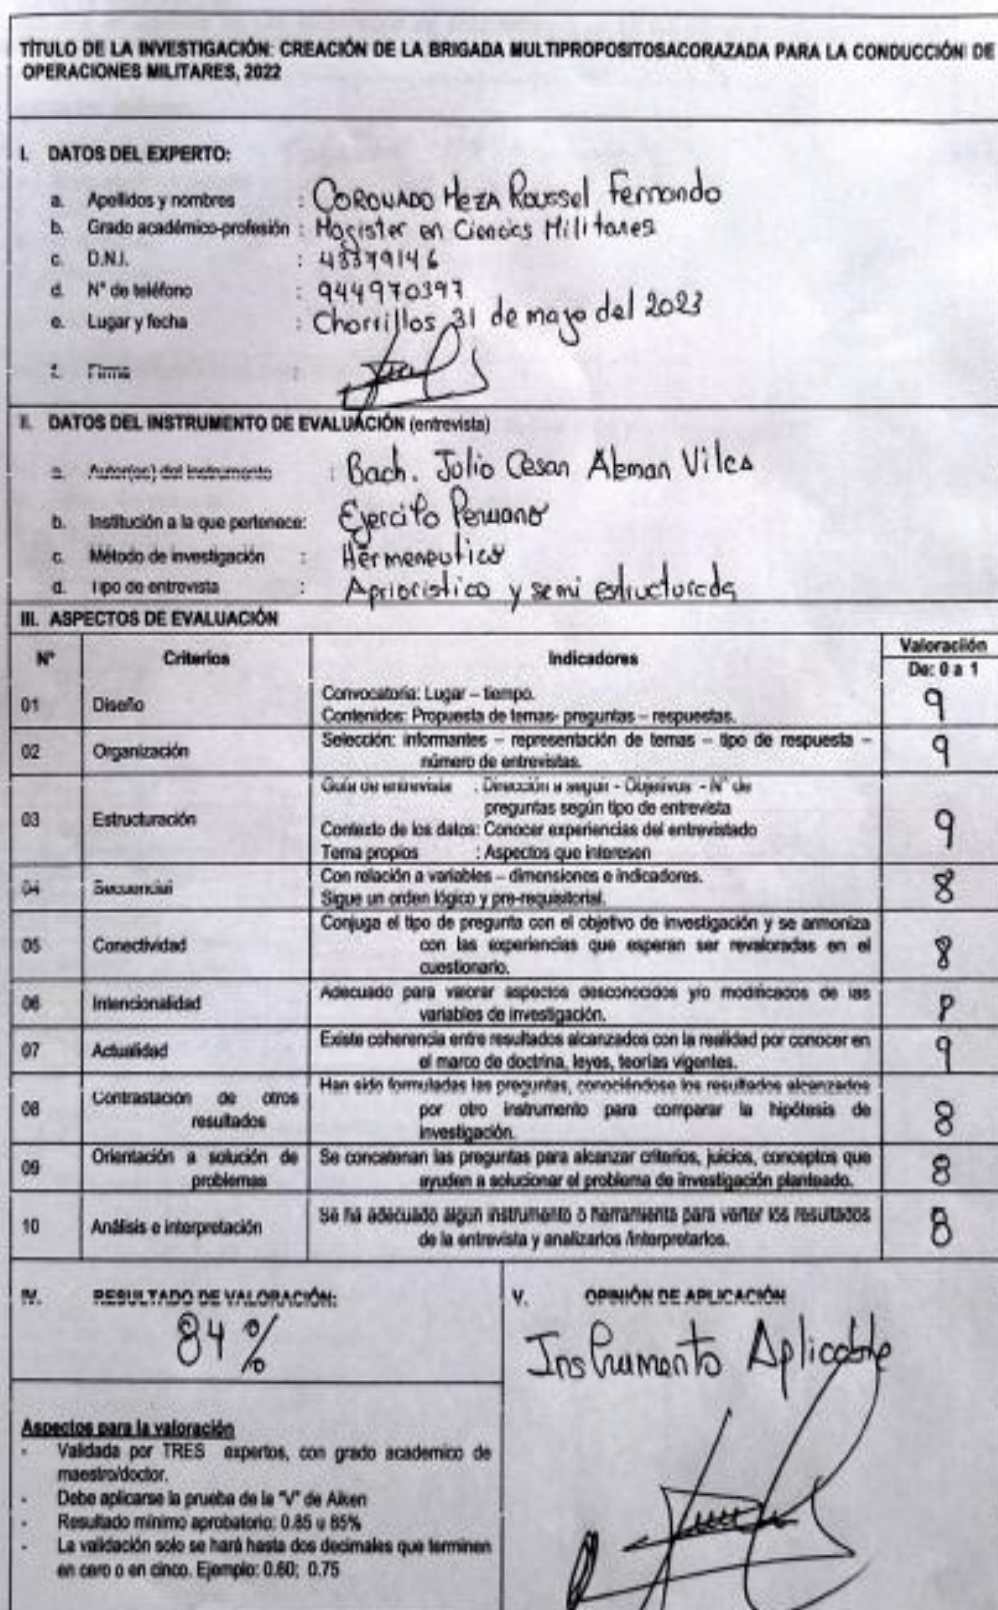 TÍTULO DE LA INVESTIGACIÓN: CREACIÓN DE LA BRIGADA MULTIPROPOSITOSACORAZADA PARA LA CONDUCCIÓN DE
OPERACIONES MILITARES, 2022
I. DATOS DEL EXPERTO:
a. Apellidos y nombres : CORONADO MEZA Roussel Fernando
b. Grado académico-profesión : Magister en Ciencias Militares
c. D.N.I. : 43379146
d. N° de teléfono : 944970397
e. Lugar y fecha : Chorrillos 31 de mayo del 2023
f. Firma :
II. DATOS DEL INSTRUMENTO DE EVALUACIÓN (entrevista)
a. Autor(es) del instrumento : Bach. Julio Cesar Aleman Vilca
b. Institución a la que pertenece: Ejercito Peruano
c. Método de investigación : Hermeneutico
d. Tipo de entrevista : Aprioristico y semi estructurada
III. ASPECTOS DE EVALUACIÓN
N° Criterios Indicadores Valoración
De: 0 a 1
01 Diseño Convocatoria: Lugar – tiempo. 9
Contenidos: Propuesta de temas- preguntas – respuestas.
02 Organización Selección: informantes – representación de temas – tipo de respuesta – 9
número de entrevistas.
Guía de entrevista : Dirección a seguir - Objetivos - N° de
preguntas según tipo de entrevista
03 Estructuración Contexto de los datos: Conocer experiencias del entrevistado 9
Tema propios : Aspectos que interesen
04 Secuencial Con relación a variables – dimensiones e indicadores. 8
Sigue un orden lógico y pre-requisitorial.
Conjuga el tipo de pregunta con el objetivo de investigación y se armoniza
05 Conectividad con las experiencias que esperan ser revaloradas en el 8
cuestionario.
06 Intencionalidad Adecuado para valorar aspectos desconocidos y/o modificados de las 8
variables de investigación.
07 Actualidad Existe coherencia entre resultados alcanzados con la realidad por conocer en 9
el marco de doctrina, leyes, teorías vigentes.
08 Contrastación de otros Han sido formuladas las preguntas, conociéndose los resultados alcanzados
resultados por otro instrumento para comparar la hipótesis de 8
investigación.
09 Orientación a solución de Se concatenan las preguntas para alcanzar criterios, juicios, conceptos que 8
problemas ayuden a solucionar el problema de investigación planteado.
10 Análisis e interpretación Se ha adecuado algún instrumento o herramienta para verter los resultados 8
de la entrevista y analizarlos /interpretarlos.
IV. RESULTADO DE VALORACIÓN:
84 %
Aspectos para la valoración
- Validada por TRES expertos, con grado academico de
maestro/doctor.
- Debe aplicarse la prueba de la "V" de Aiken
- Resultado mínimo aprobatorio: 0.85 u 85%
- La validación solo se hará hasta dos decimales que terminen
en cero o en cinco. Ejemplo: 0.60; 0.75
V. OPINIÓN DE APLICACIÓN
Instrumento Aplicable